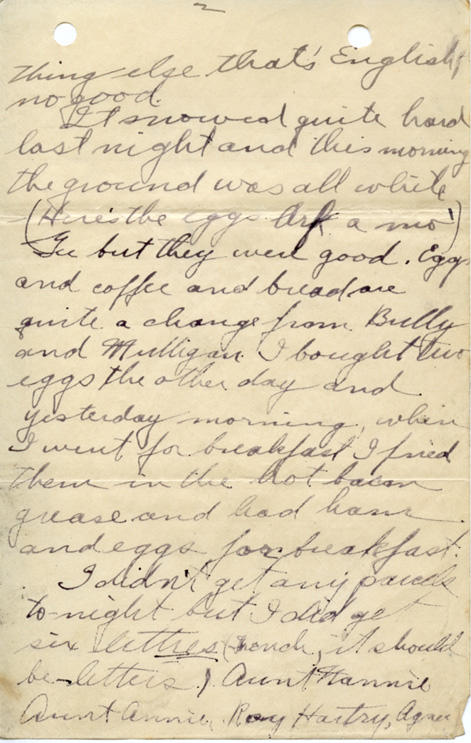 2
thing else that's English,
no good.
It snowed quite hard
last night and this morning
the ground was all white
(Here's the eggs. Arf a mo')
Gee but they were good. Eggs
and coffee and bread are
quite a change from Bully
and Mulligan. I bought two
eggs the other day and
yesterday morning, when
I went for breakfast I fried
them in the hot bacon
grease and had ham
and eggs for breakfast.
I didn't get any parcels
to-night but I did get
six lettres (French, it should
be letters) Aunt Nannie
Aunt Annie, Roy Hartry, Agnes